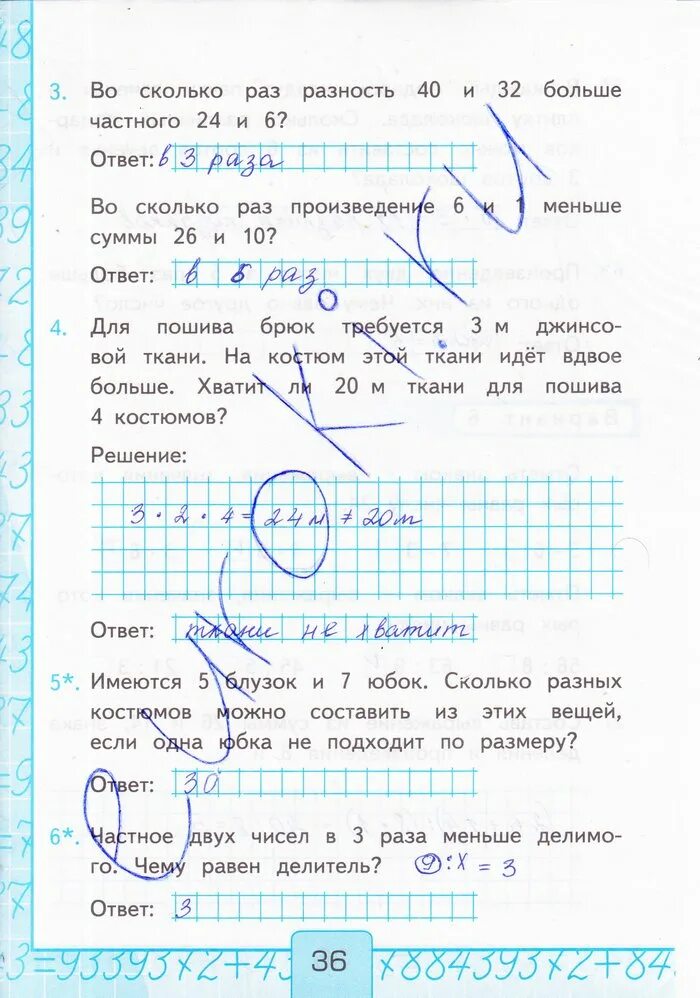 3. Во сколько раз разность 40 и 32 больше
частного 24 и 6?
Ответ: в 3 раза
Во сколько раз произведение 6 и 1 меньше
суммы 26 и 10?
Ответ: в 6 раз
4. Для пошива брюк требуется 3 м джинсо-
вой ткани. На костюм этой ткани идёт вдвое
больше. Хватит ли 20 м ткани для пошива
4 костюмов?
Решение:
3 · 2 · 4 = 24м ≠ 20м
Ответ: ткани не хватит
5*. Имеются 5 блузок и 7 юбок. Сколько разных
костюмов можно составить из этих вещей,
если одна юбка не подходит по размеру?
Ответ: 30
6*. Частное двух чисел в 3 раза меньше делимо-
го. Чему равен делитель? 9 : х = 3
Ответ: 3
36